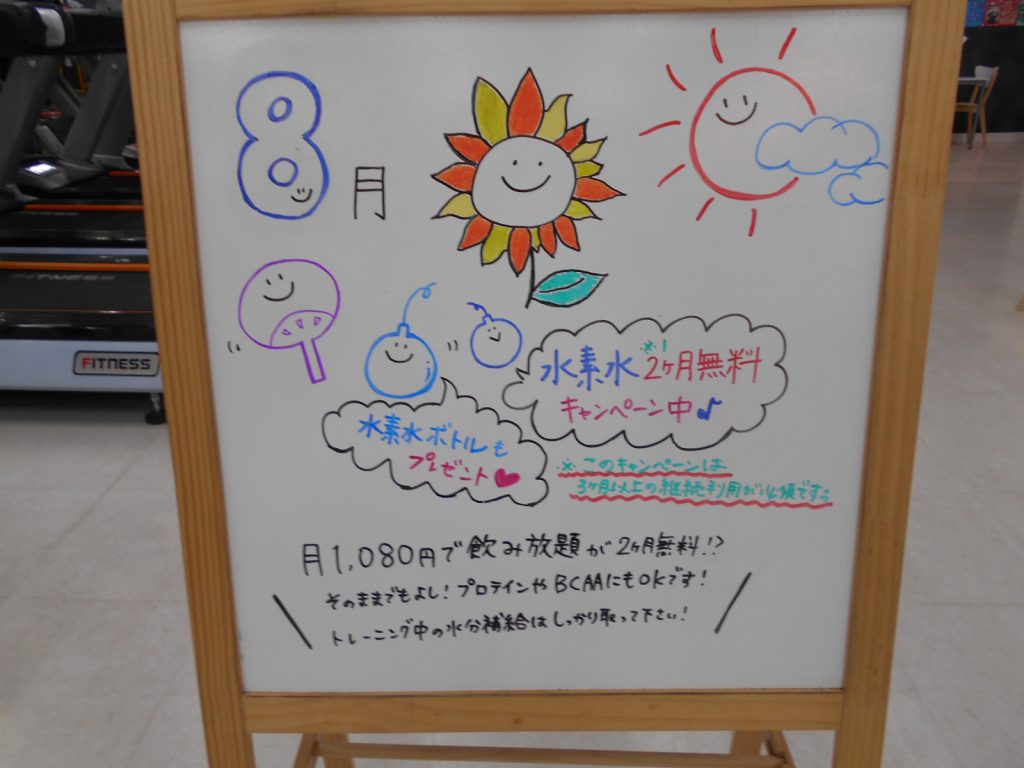 8月
水素水 ※1 2ヶ月無料
キャンペーン中♪
水素水ボトルも
プレゼント♥
※このキャンペーンは
3ヶ月以上の継続利用が必須です。
月1,080円で飲み放題が2ヶ月無料!?
そのままでもよし!プロテインやBCAAにもOKです!
トレーニング中の水分補給はしっかり取って下さい!
FITNESS